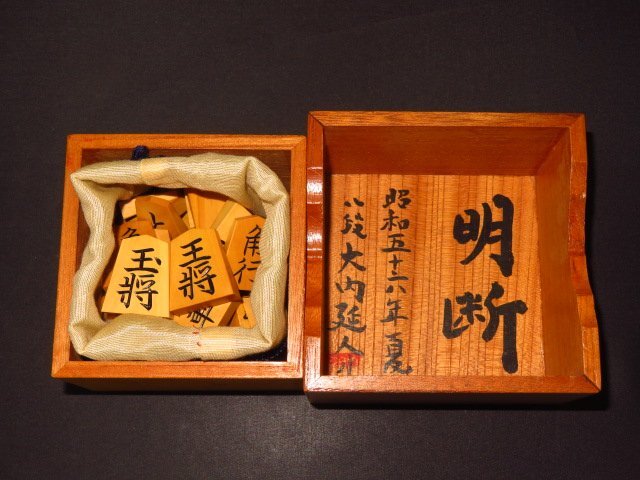 明断
昭和五十六年 夏
八段 大内延介
玉將
王將
角行